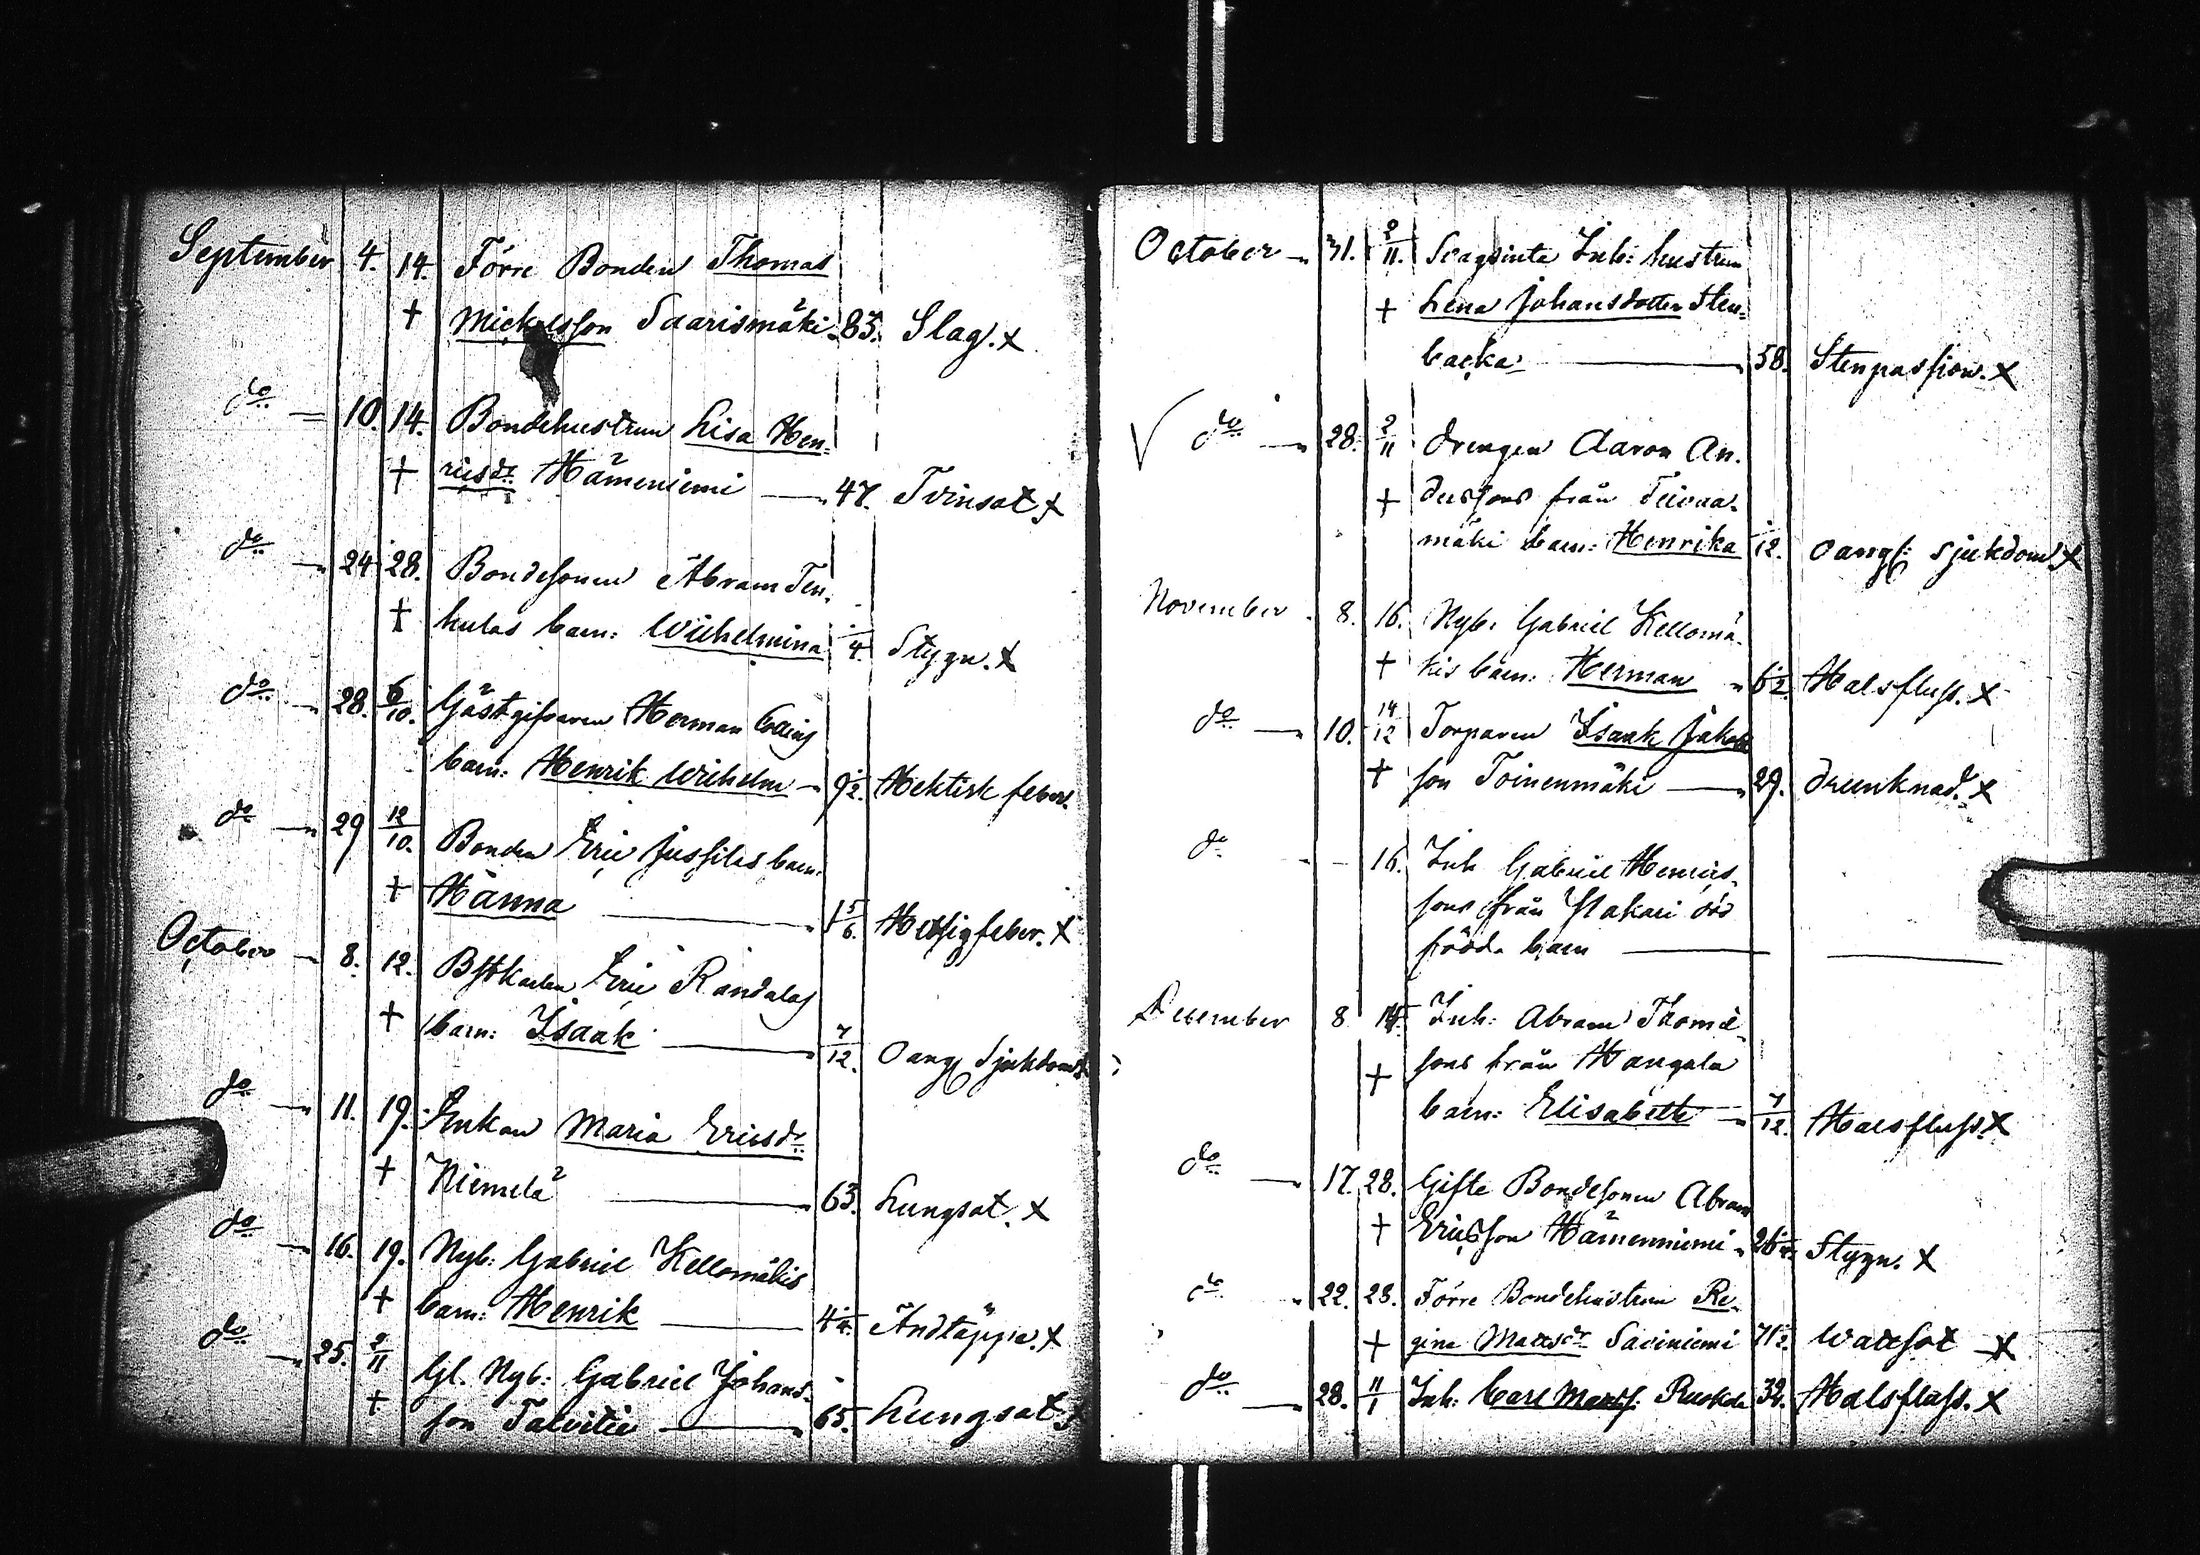 September 4. 14. Förre Bonden Thomas
† Mickelsson Saarismäki 83. Slag. x
do 10. 14. Bondehustrun Lisa Hen-
† ricsdr Hämeniemi 47. Tvinsot x
do 24 28. Bondesonen Abram Ten-
† kulas barn: Wilhelmina 1/4. Stygn. x
do 28. 6/10. Gästgifvaren Herman
barn: Henrik Wilhelm 9 1/2. Hektisk feber.
do 29 12/10. Bonden Eric Jussilas barn
† Hanna 1 5/6. Hetsigfeber. x
October 8. 12. Eric Randalas
† barn: Isaak 7/12. Oang Sjukdom
do 11. 19. Enkan Maria Ericsdr
† Niemelä 63. Lungsot. x
do 16. 19. Nyb: Gabriel Kellomäkis
† barn: Henrik 4 1/4. Andtäppa. x
do 25. 2/11 Gl. Nyb: Gabriel Johans-
† son Talvitie 65. Lungsot. x
October 31. 2/11. Inh: hustrun
† Lena Johansdotter Sten-
backa 58. Stenpassion. x
do 28. 2/11 Drengen Aaron An-
† derssons från Teivaa-
mäki barn: Henrika 1/12. oangf: sjukdom x
November 8. 16. Nyb: Gabriel Kellomä-
† kis barn: Herman 6 1/2. Halsfluss. x
do 10. 14/12 Torparen Isaak Jakobs
† son Toinenmäki 29. drunknad. x
do 16. Inh Gabriel Henrics-
sons från Hakari död
födda barn
December 8 14. Inh: Abram Thomæ
† sons från Mangala
barn: Elisabeth 7/12. Halsfluss. x
do 17. 28. Gifte Bondesonen Abram
† Ericsson Hämenniemi 26 1/4. Stygn. x
do 22. 28. Förre Bondehustrun Re-
† gina Mattsdr Saviniemi 71 1/2. Wattsot x
do 28. 11/1 Inh: Carl Matts: 32. Halsfluss. x